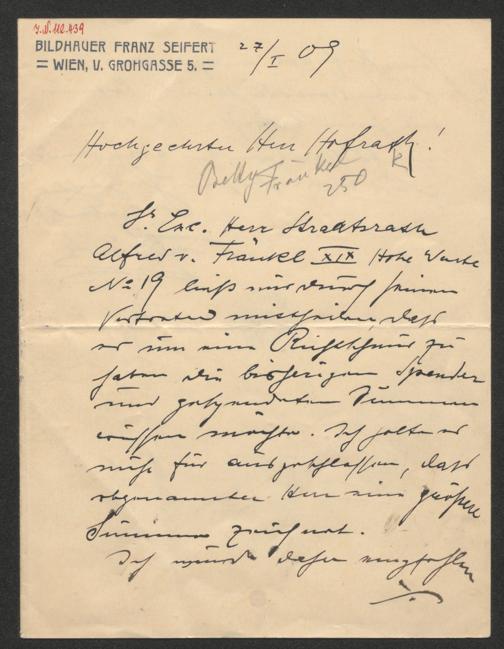 I.N. 112.439
BILDHAUER FRANZ SEIFERT
= WIEN, V. GROHGASSE 5. =
27/I 09
Hochgeehrter Herr Hofrath!
Betty Fränkel K
250
Sr. Exc. Herr Staatsrath
Alfred v. Fränkel XIX Hohe Warte
No 19 ließ mir durch seinen
Vertreter mittheilen, daß
er um eine Richtschnur zu
haben die bisherigen Spender
und gespendeten Summen
wissen möchte. Ich halte es
nicht für ausgeschlossen, daß
obgenannter Herr eine größere
Summe zeichnet.
Ich würde daher empfehlen